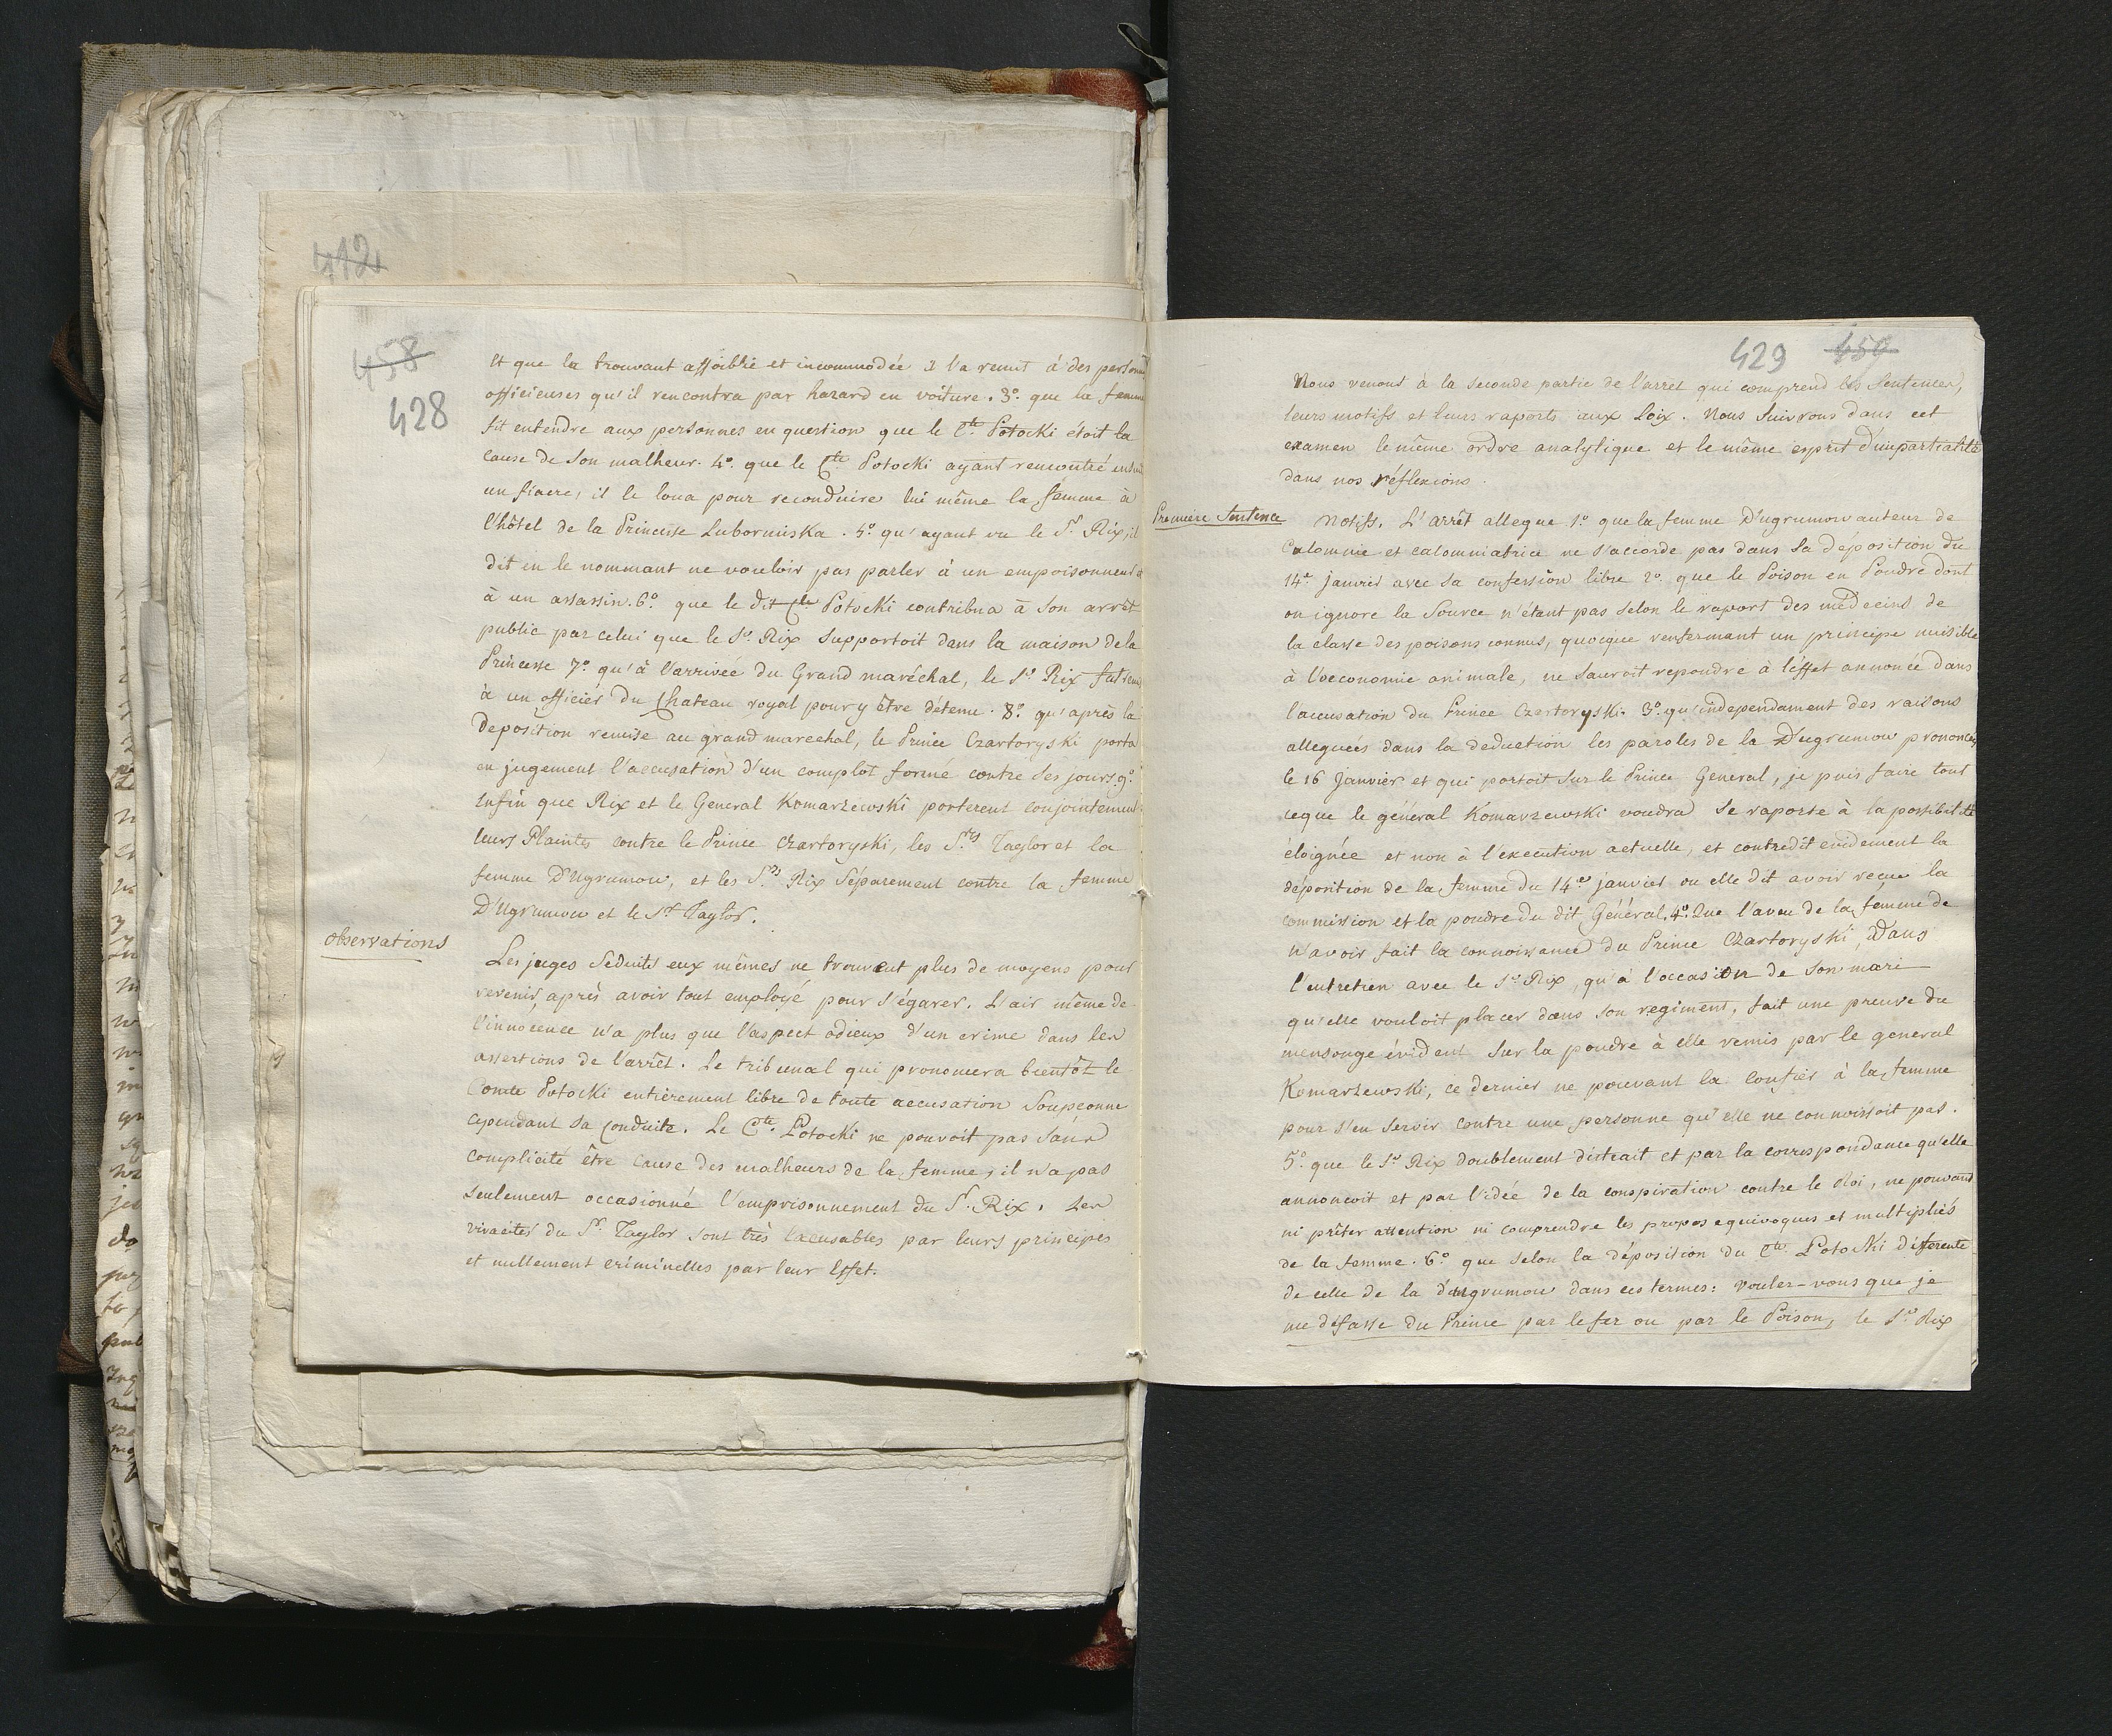 412
458
428
Et que la trouvant affoiblie et incommodée il l'a remit à des personn
officieuses qu'il rencontra par hazard en voiture. 3º. que la femme
fit entendre aux personnes en question que le Cte. Potocki étoit la
cause de son malheur. 4º. que le Cte Potocki ayant rencontré
un fiacre, il le loua pour reconduire lui même la femme à
l'hôtel de la Princesse Lubormiska. 5º. qu'ayant vu le Sr. Rix, il
dit en le nommant ne vouloir pas parler à un empoisonneur et
à un assassin. 6º. que le dit Cte Potocki contribua à son arrêt
public par celui que le Sr. Rix supportoit dans la maison de la
Princesse 7º. qu'à l'arrivée du Grand maréchal, le Sr. Rix fut remis
à un officier du Chateau royal pour y être détenu. 8º. qu'après la
Deposition remise au grand marechal, le Prince Czartoryski porta
en jugement l'accusation d'un complot formé contre ses jours. 9º.
Enfin que Rix et le General Komarzewski porterent conjointement
leurs Plaintes contre le Prince Czartoryski, les Srs Taylor et la
femme D'Ugrumow, et les Srs Rix séparement contre la femme
D'Ugrumow et le Sr Taylor.
observations
Les juges séduits eux mêmes ne trouvent plus de moyens pour
revenir, après avoir tout employé pour s'égarer. L'air même de
l'innocence n'a plus que l'aspect odieux d'un crime dans les
assertions de l'arrêt. Le tribunal qui prononcera bientôt le
Comte Potocki entièrement libre de toute accusation soupconne
cependant sa conduite. Le Cte. Potocki ne pouvoit pas sans
complicité être cause des malheurs de la femme, il n'a pas
seulement occasionné l'emprisonnement du Sr. Rix. Les
vivacités du Sr. Taylor sont très excusables par leurs principes
et nullement criminelles par leur Effet.
429 459
Nous venons à la seconde partie de l'arret qui comprend les Sentences,
leurs motifs et leurs raports aux Loix. Nous suivrons dans cet
examen le même ordre analytique et le même esprit d'impartialité
dans nos réflexions.
Première Sentence
Motifs. L'arrêt allegue 1º que la femme D'ugrumow auteur de
Calomnie et calomniatrice ne s'accorde pas dans sa déposition du
14e. janvier avec sa confession libre 2º. que le Poison en Poudre dont
on ignore la source n'étant pas selon le raport des médecins de
la classe des poisons connus, quoique renfermant un principe nuisible
à l'oeconomie animale, ne sauroit repondre à l'éffet annoncé dans
l'accusation du Prince Czartoryski. 3º. qu'independament des raisons
alleguées dans la deduction les paroles de la D'ugrumow prononcées
le 16 janvier et qui portoit sur le Prince General, je puis faire tout
ceque le général Komarzewski voudra se raporte à la possibilité
éloignée et non à l'execution actuelle, et contredit evidement la
déposition de la femme du 14e janvier ou elle dit avoir reçue la
commission et la poudre du dit Général. 4º. Que l'aveu de la femme de
n'avoir fait la connoissance du Prince Czartoryski, Dans
l'entretien avec le Sr. Rix, qu'à l'occasion de son mari
qu'elle vouloit placer dans son regiment, fait une preuve du
mensonge évident sur la poudre à elle remis par le general
Komarzewski, ce dernier ne pouvant la confier à la femme
pour s'en servir contre une personne qu'elle ne connoissoit pas.
5º. que le Sr. Rix doublement distrait et par la correspondance qu'elle
annoncoit et par l'idée de la conspiration contre le Roi, ne pouvant
ni prêter attention ni comprendre les propos equivoques et multipliés
de la femme. 6º. que selon la déposition du Cte. Potocki différente
de celle de la d'ugrumow dans ces termes: voulez-vous que je
me défasse du Prince par le fer ou par le Poison, le Sr. Rix